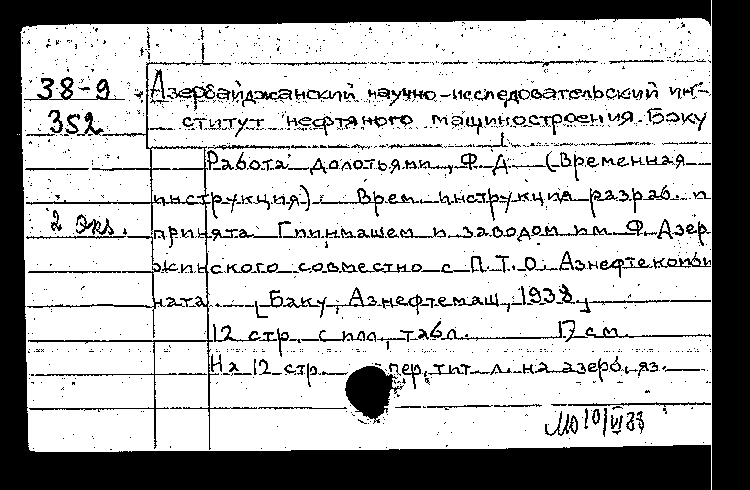 38-9
352
Азербайджанский научно-исследовательский ин-
ститут нефтяного машиностроения. Баку
Работа долотьями „Ф. Д. (Временная
инструкция). Врем. инструкция разраб. и
2 экз.
принята Гпинмашем и заводом им Ф. Дзер
жинского совместно с П. Т. О. Азнефтекомби
ната. [Баку, Азнефтемаш, 1938]
12 стр. с илл., табл. 17 см.
На 12 стр. пер. тит. л. на азерб. яз.